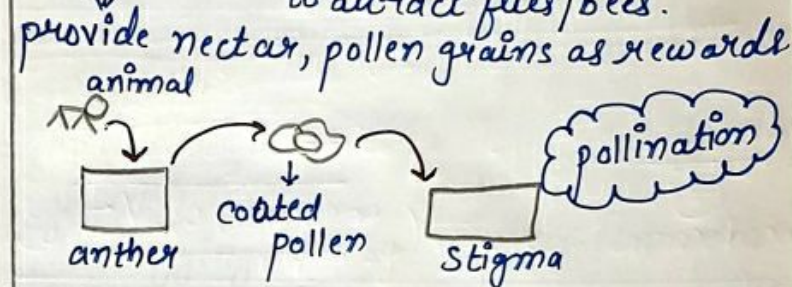 to attract flies/bees.
provide nectar, pollen grains as rewards
animal
pollination
coated
pollen
anther
stigma